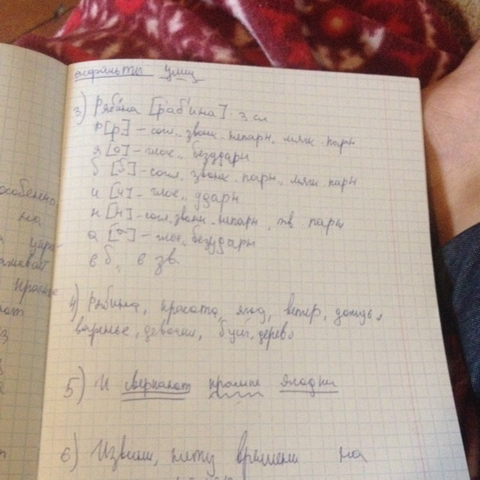 асфальты улиц
3) Рябина [р'аб'ина] - 3 сл
р [р] - согл. звонк. непарн. мягк. парн
я [а] - глас., безударн
б [б] - согл. звонк. парн. мягк. парн
и [и] - глас., ударн
н [н] - согл. звонк. непарн, тв парн
а [а] - глас, безударн
6 б, 6 зв
4) Рябина, красота, ягод, ветер, дождь,
варенье, девочки, бус, дерево
5) И сверкают ягодки
6) Извини, нету времени на
особенно
на